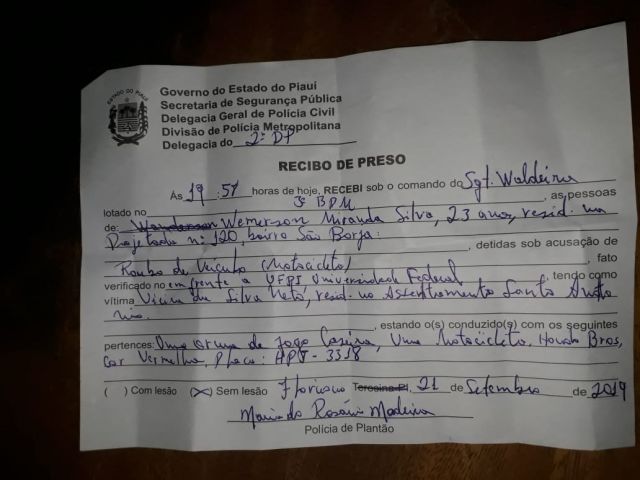 ESTADO DO PIAUÍ
Governo do Estado do Piauí
Secretaria de Segurança Pública
Delegacia Geral de Polícia Civil
Divisão de Polícia Metropolitana
Delegacia do 2º DP
RECIBO DE PRESO
Às 19:57 horas de hoje, RECEBI sob o comando do Sgt. Waldeira
lotado no 3º BPM, as pessoas
de: Wanderson Wemerson Miranda Silva, 23 anos, resid. na
Projetada nº 120, bairro São Borja.
, detidas sob acusação de
Roubo de Veículo (Motocicleta), fato
verificado no em frente a UFPI Universidade Federal, tendo como
vítima Vieira da Silva Neto, resid. no Assentamento Santo Antô
nio.
, estando o(s) conduzido(s) com os seguintes
pertences: Uma arma de fogo Caseira, Uma Motocicleta, Honda Bros,
Cor Vermelha, Placa: 3318
( ) Com lesão (X) Sem lesão Floriano Teresina-PI, 21 de Setembro de 2019
Maria do Rosário Madeira
Polícia de Plantão